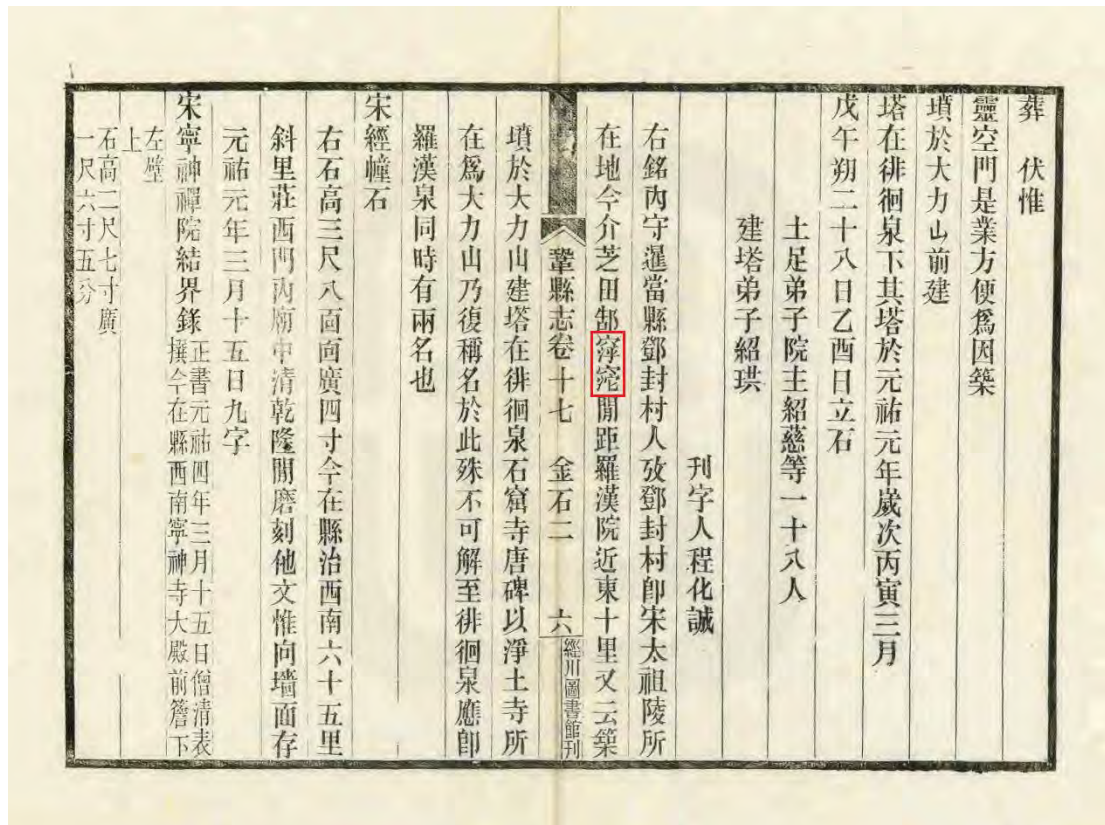 葬　伏惟
靈空門是業方便爲因築
墳於大力山前建
塔在徘徊泉下其塔於元祐元年歲次丙寅三月
戊午朔二十八日乙酉日立石
土足弟子院主紹慈等一十八人
建塔弟子紹珙
刊字人程化誠
右銘內守暹當縣鄧封村人攷鄧封村卽宋太祖陵所
在地今介芝田郜閒距羅漢院近東十里又云築
鞏縣志卷十七　金石二　六　經川圖書館刊
墳於大力山建塔在徘徊泉石窟寺唐碑以淨土寺所
在爲大力山乃復稱名於此殊不可解至徘徊泉應卽
羅漢泉同時有兩名也
宋經幢石
右石高三尺八面面廣四寸今在縣治西南六十五里
斜里莊西門內廟中清乾隆閒磨刻他文惟向墻面存
元祐元年三月十五日九字
宋寧神禪院結界錄
正書元祐四年三月十五日僧清表
撰今在縣西南寧神寺大殿前簷下
左壁
上
石高二尺七寸廣
一尺六寸五分